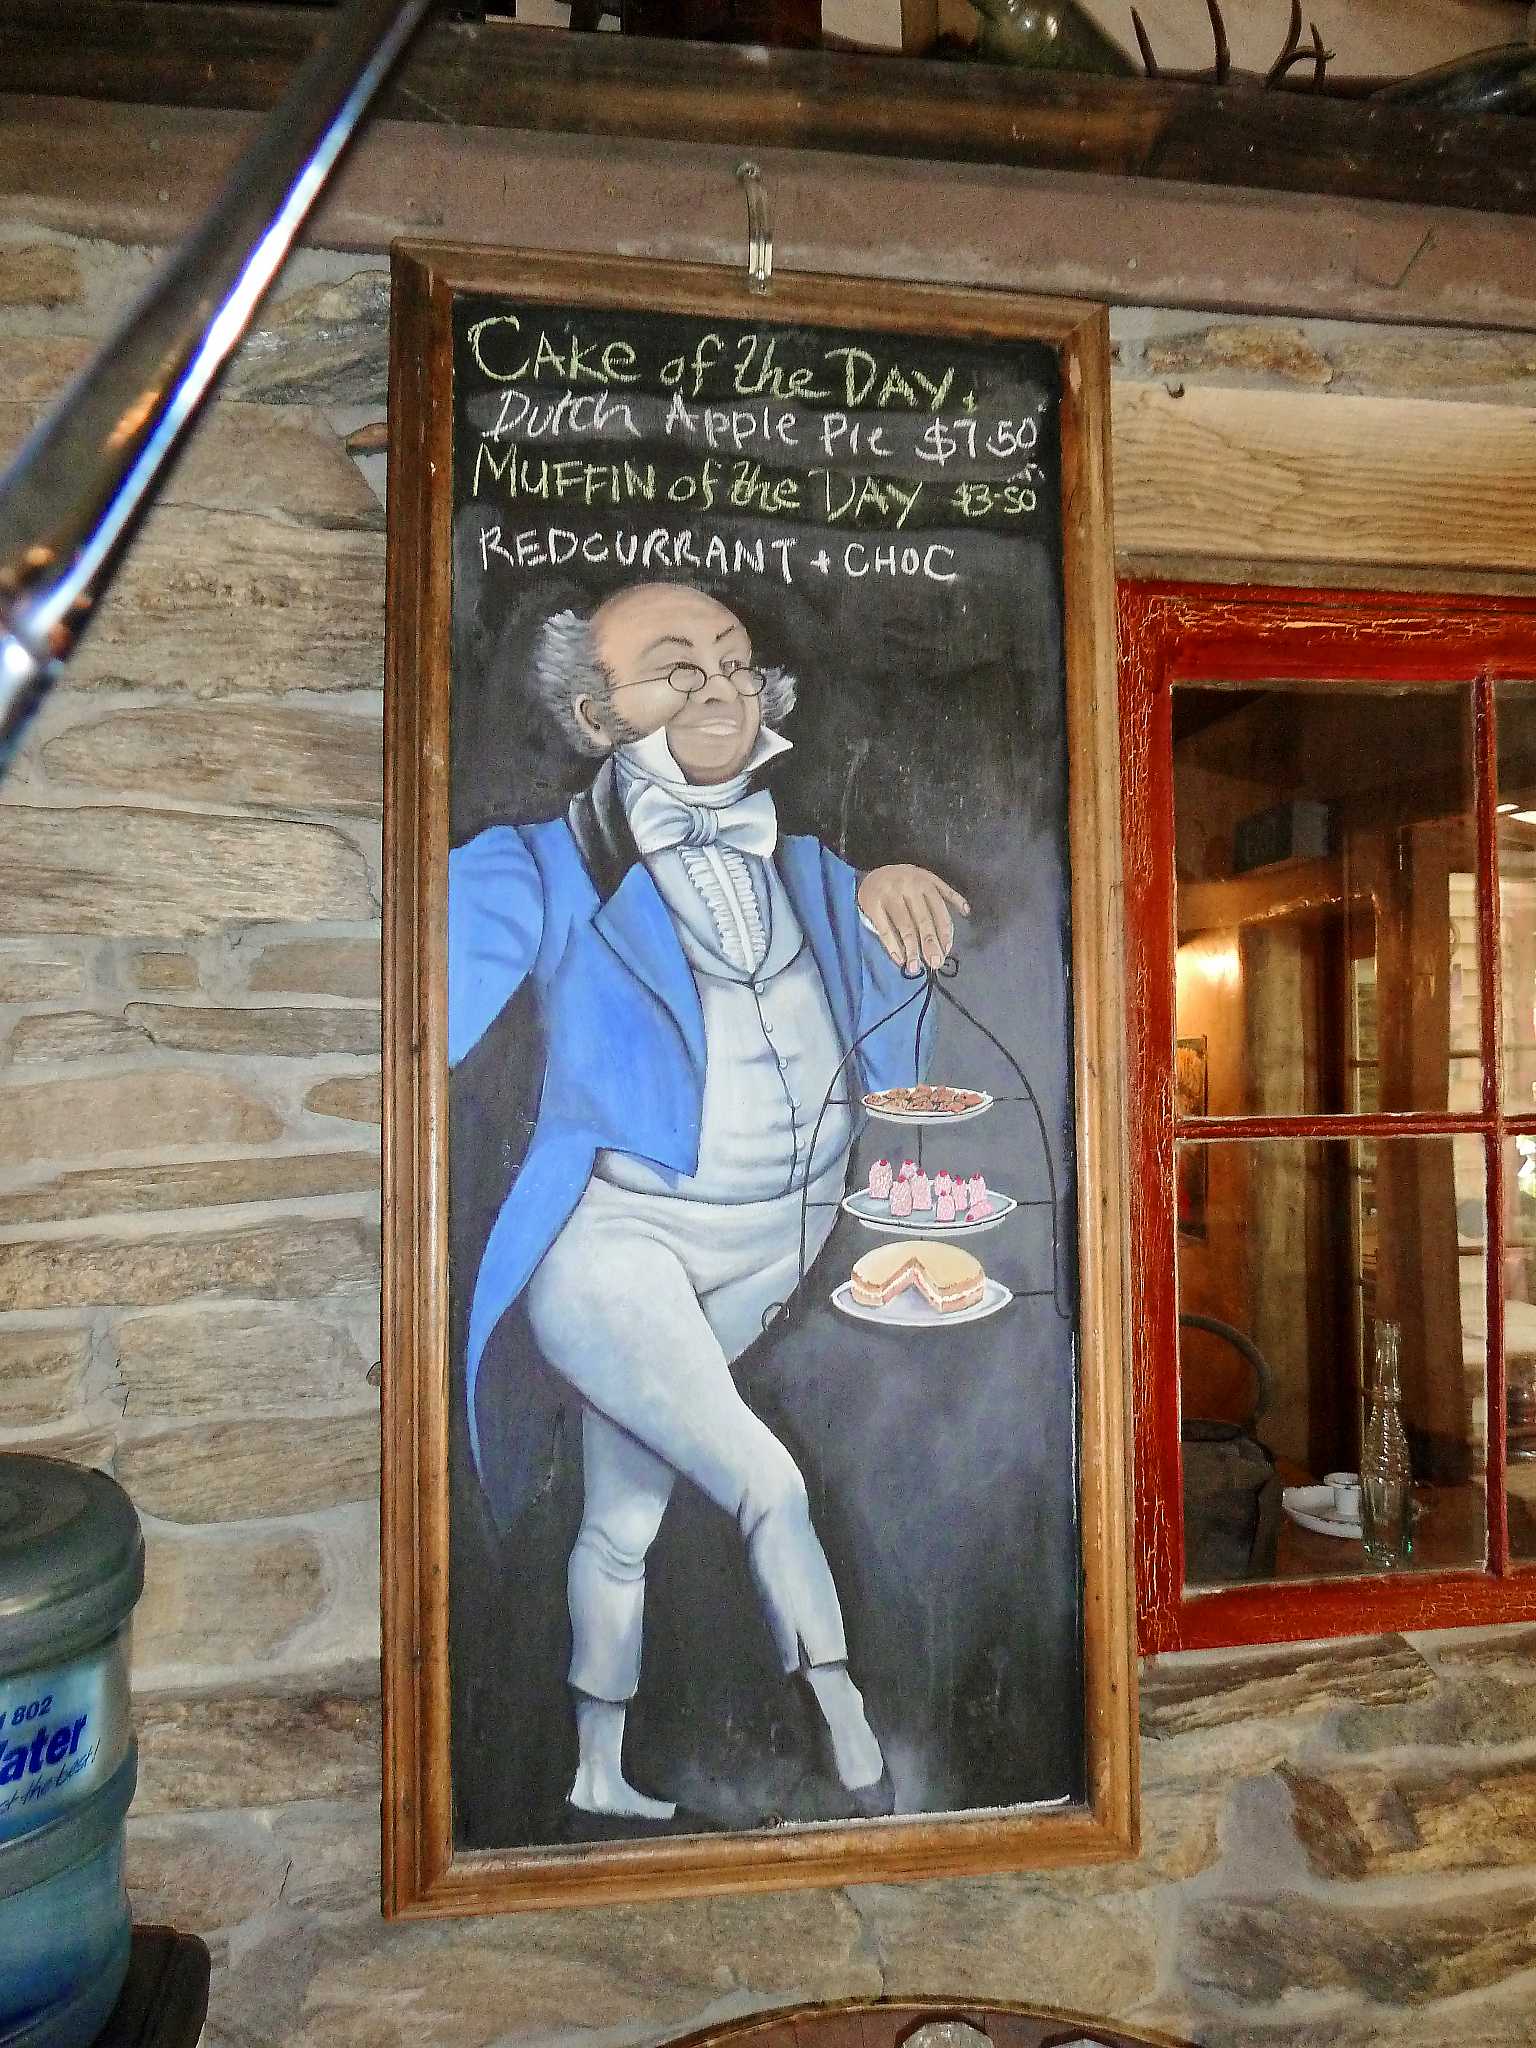 CAKe of the DAY.
Dutch Apple Pie $7.50
MUFFIN of the DAY $3-50
REDCURRANT + CHOC
802
ater
the best!